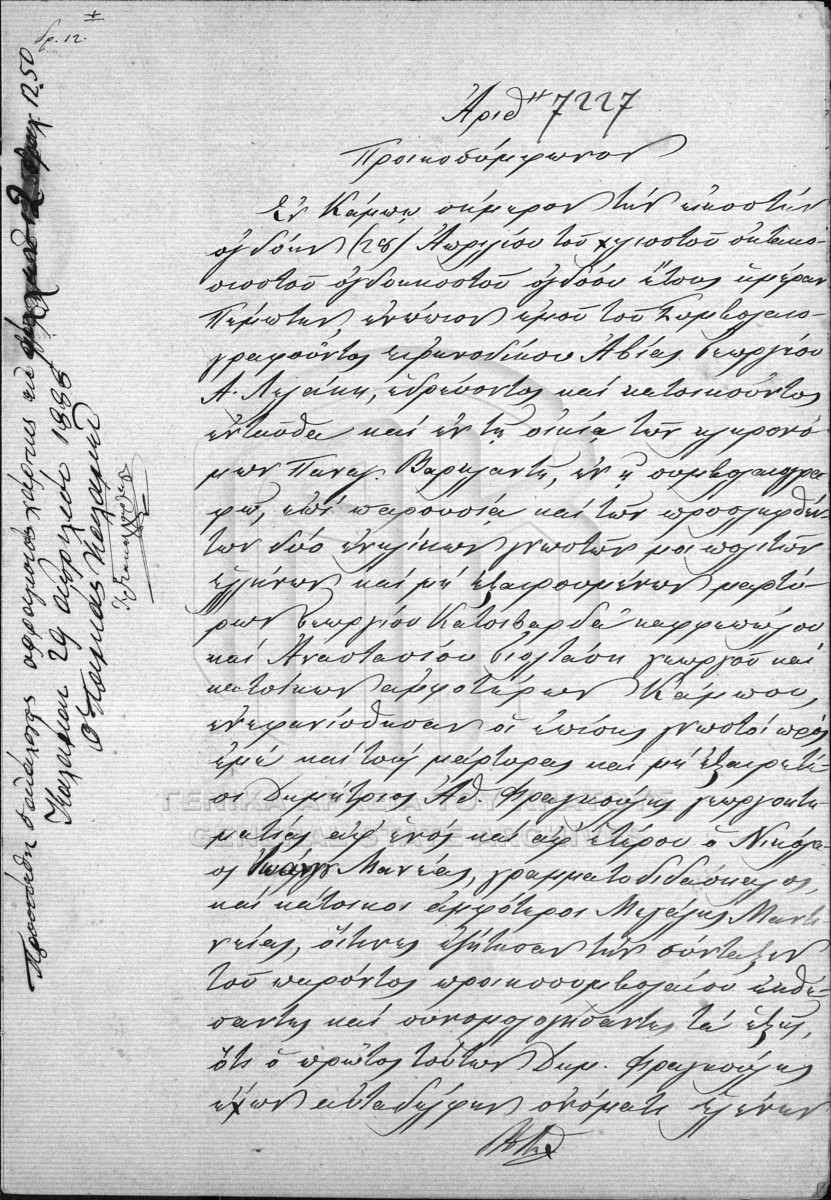 δρ. 12.
Ἀριθ. 7227
Προικοσύμφωνον
Ἐν Κάμπῳ σήμερον τὴν εἰκοστὴν
ὀγδόην (28) Ἀπριλίου τοῦ χιλιοστοῦ ὀκτακο-
σιοστοῦ ὀγδοηκοστοῦ ὀγδόου ἔτους ἡμέραν
Πέμπτην, ἐνώπιον ἐμοῦ τοῦ Συμβολαιο-
γραφοῦντος εἰρηνοδίκου Ἀβίας Γεωργίου
Α. , ἑδρεύοντος καὶ κατοικοῦντος
ἐνταῦθα καὶ ἐν τῇ οἰκίᾳ τῶν κληρονό-
μων Παναγ. , ἐν ᾗ συμβολαιογρα-
φῶ, ἐπὶ παρουσίᾳ καὶ τῶν προσληφθέν-
των δύο ἐνηλίκων γνωστῶν μοι πολιτῶν
ἑλλήνων καὶ μὴ ἐξαιρουμένων μαρτύ-
ρων Γεωργίου Κατσιβαρδᾶ καφφεπώλου
καὶ Ἀναστασίου γεωργοῦ καὶ
κατοίκων ἀμφοτέρων Κάμπου,
ἐνεφανίσθησαν οἱ ἐπίσης γνωστοὶ πρὸς
ἐμὲ καὶ τοὺς μάρτυρας καὶ μὴ ἐξαιρετέ-
οι Δημήτριος Ἀθ. Φραγκούλης γεωργοκτη-
ματίας ἀφ' ἑνὸς καὶ ἀφ' ἑτέρου ὁ Νικόλα-
ος Μανέας, γραμματοδιδάσκαλος,
καὶ κάτοικοι ἀμφότεροι Μεγάλης Μαντι-
νείας, οἵτινες ἐζήτησαν τὴν σύνταξιν
τοῦ παρόντος προικοσυμβολαίου ἐκθέ-
σαντες καὶ συνομολογήσαντες τὰ ἑξῆς,
ὅτι ὁ πρῶτος τούτων Δημ. Φραγκούλης
ἔχων αὐταδέλφην ὀνόματι Ἑλένην
Προσετέθη ὁ ἀνάλογος χάρτης ἐκ δραχ. 12.50
29 Ἀπριλίου 188
Ὁ Ταμίας
ΓΕΝΙΚΑ ΑΡΧΕΙΑ ΤΟΥ ΚΡΑΤΟΥΣ
GENERAL STATE ARCHIVES